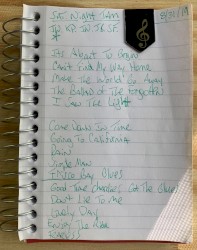 SAT Night JAM
8/31/19
JD KP JW JB SF
*
It's About To Begin
Can't Find My Way Home
Make The World Go Away
The Ballad of The Forgotten
I Saw The Light
Come Down In Time
Going To California
Rain
Single Man
Good Time Charlie's Got The Blues
Don't Lie To Me
Lovely Day
Enjoy The Ride